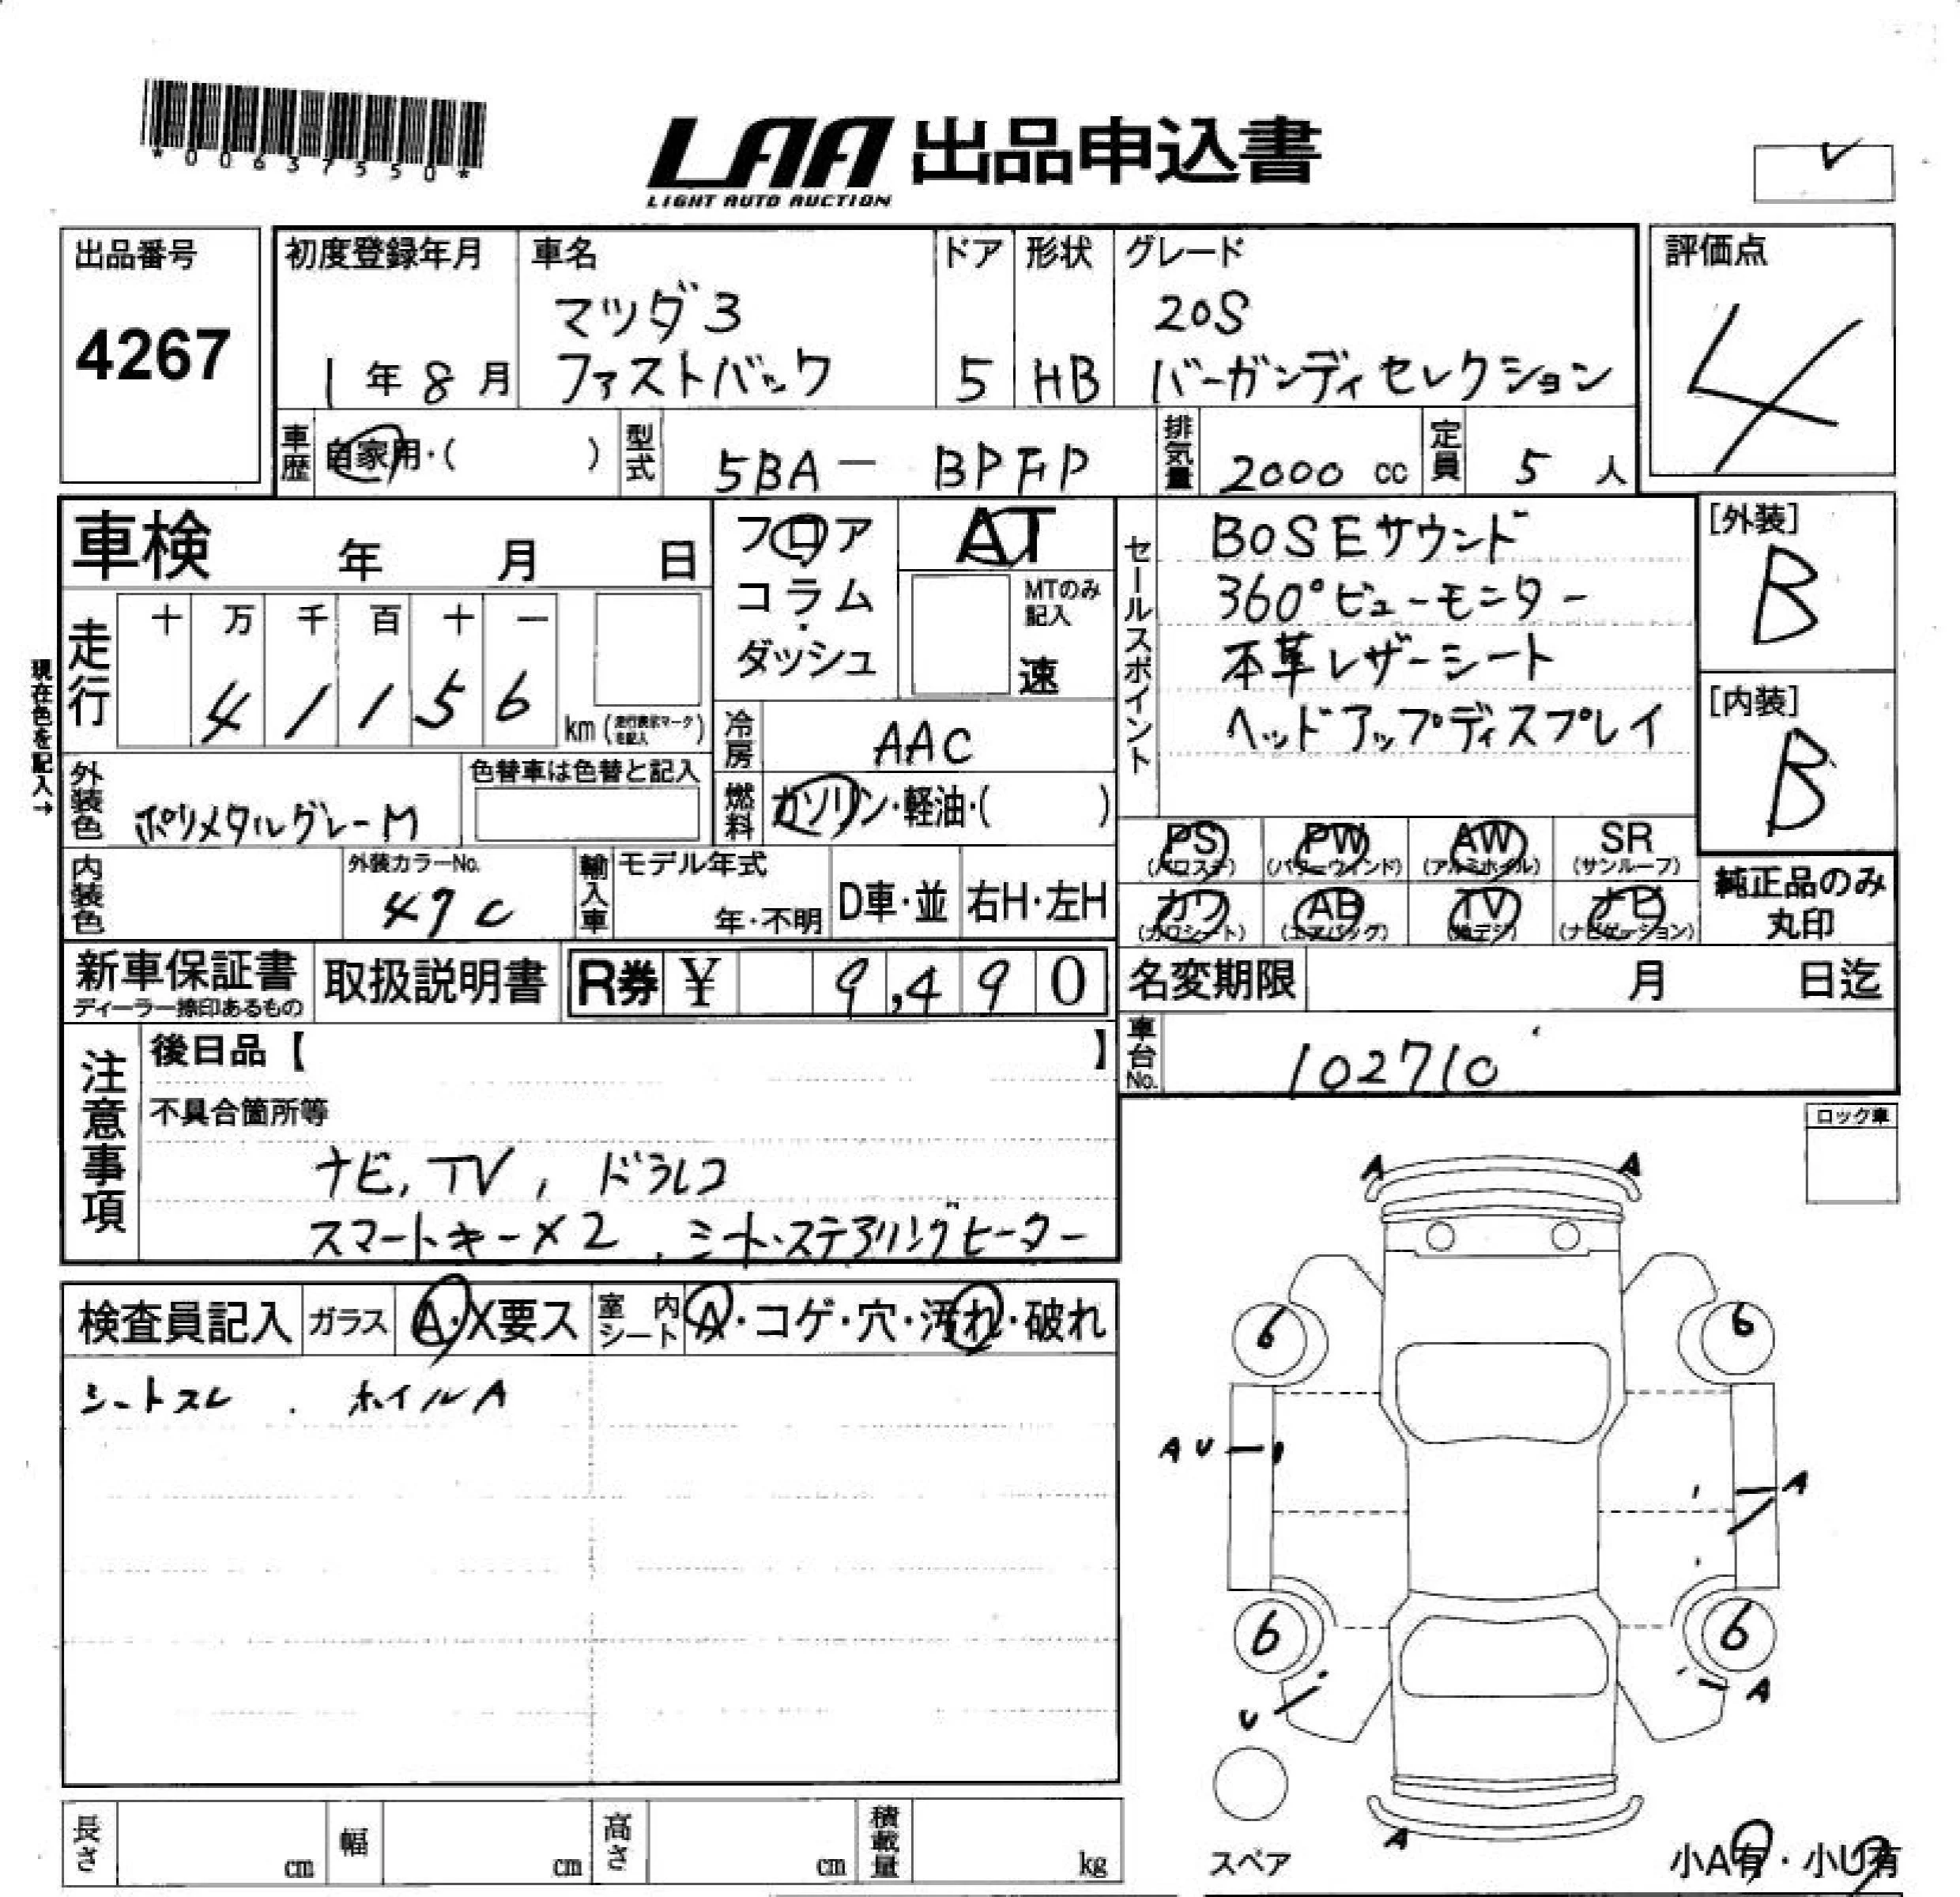 *00637550*
LAA 出品申込書
LIGHT AUTO AUCTION
出品番号
4267
初度登録年月
1年8月
車名
マツダ3
ファストバック
ドア
5
形状
HB
グレード
20S
バーガンディセレクション
評価点
4
車歴
自家用・( )
型式
5BA - BPFP
排気量
2000 cc
定員
5人
車検 年 月 日
フロア
コラム
ダッシュ
AT
MTのみ記入
速
セールスポイント
BOSEサウンド
360°ビューモニター
本革レザーシート
ヘッドアップディスプレイ
[外装]
B
[内装]
B
現在色を記入→
走行
十 万 千 百 十 一
4 1 1 5 6
km (走行表示マークを記入)
冷房
AAC
外装色
ポリメタルグレーM
色替車は色替と記入
燃料
ガソリン・軽油・( )
PS (パワステ)
PW (パワーウィンド)
AW (アルミホイル)
SR (サンルーフ)
カワ (カワシート)
AB (エアバッグ)
TV (地デジ)
ナビ (ナビゲーション)
純正品のみ
丸印
内装色
外装カラーNo.
47C
輸入車
モデル年式
年・不明
D車・並
右H・左H
新車保証書
ディーラー捺印あるもの
取扱説明書
R券 ¥ 9,490
名変期限 月 日迄
車台No.
102710
注意事項
後日品【 】
不具合箇所等
ナビ, TV, ドラレコ
スマートキー×2, シート・ステアリングヒーター
ロック車
検査員記入
ガラス
A・X要ス
室内シート
A・コゲ・穴・汚れ・破れ
シートスレ . ホイルA
A A
6 6
AU
A
6 6
U
A
A
スペア
小A有・小U有
長さ cm
幅 cm
高さ cm
積載量 kg